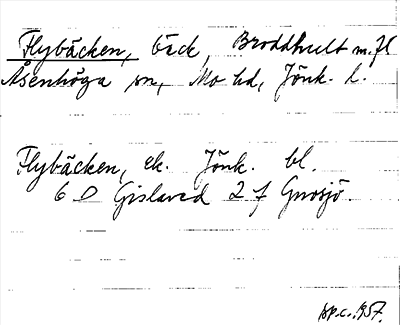 Flybäcken, bäck, Broddhult m.fl
Åsenhöga sn, Mo hd, Jönk. l.
Flybäcken, ek. Jönk. bl.
6 D Gislaved 2 f Gnosjö.
sp.c. 1957.